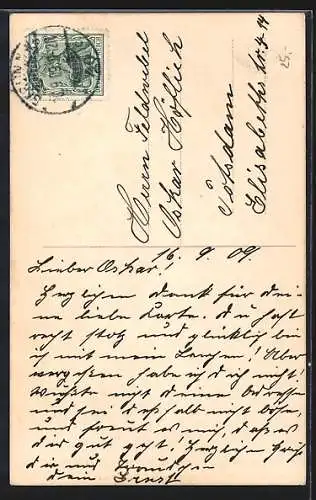 Herrn Feldwebel
Oskar Höflich
Potsdam
Elisabethstr. 14
25.-
16. 9. 09.
Lieber Oskar!
Herzlichen Dank für dei-
ne liebe Karte. du hast
recht stolz und glücklich bin
ich mit mein Lenchen! Aber
vergessen habe ich dich nicht!
Wußte nicht deine Adresse
und sei deßhalb nicht böse,
und freut es mich, daß es
dir gut geht! Herzliche Grüße
dir und
dein Ernst